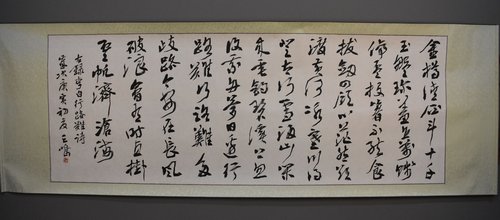 金樽清酒斗十千
玉盤珍羞直萬錢
停杯投箸不能食
拔劍四顧心茫然欲
渡黃河冰塞川將
登太行雪滿山閒
來垂釣碧溪上忽
復乘舟夢日邊行
路難行路難多
歧路今安在長風
破浪會有時直掛
雲帆濟滄海
右錄李白行路難詩
歲次庚寅初夏